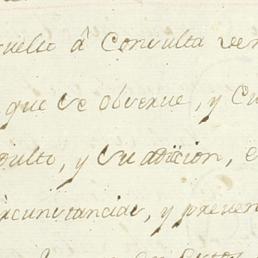 vuelto â Consulta ver
que se observe, y Cu
dulto, y su adicion, e
ircunstancias, y preven